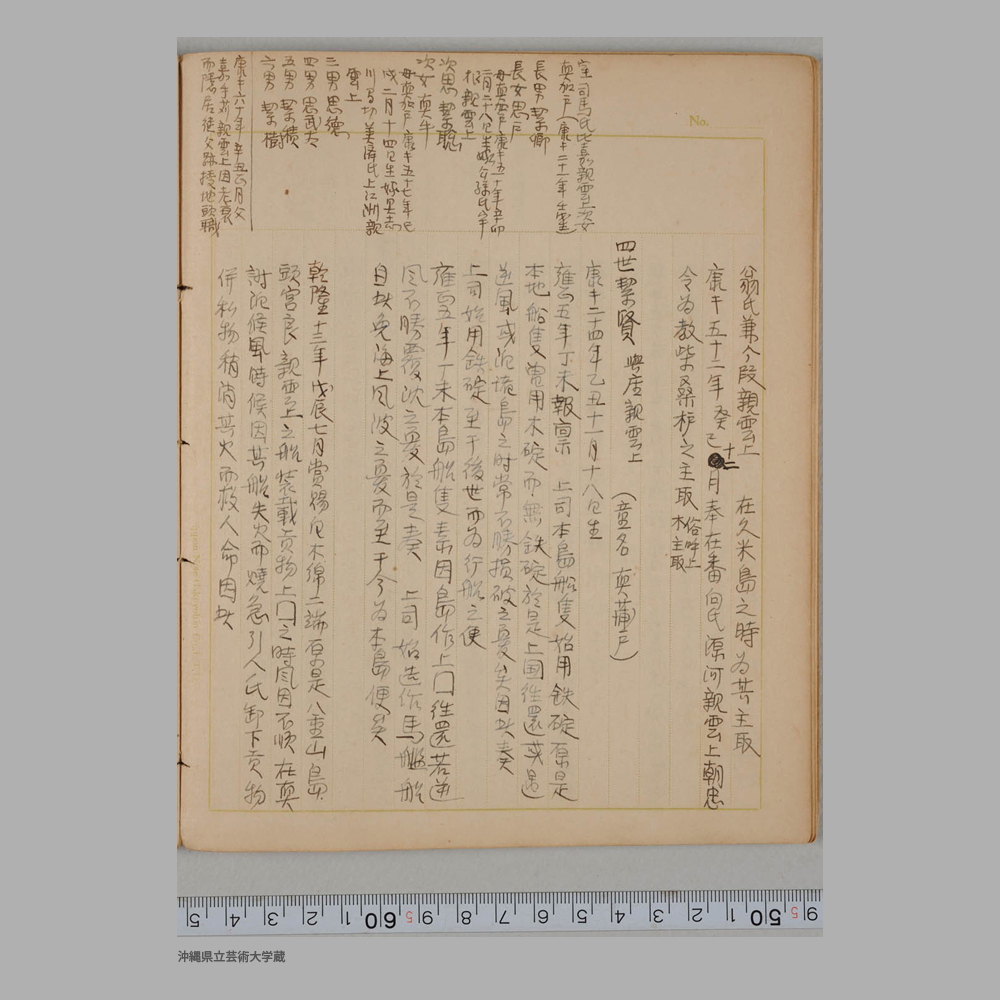 No.
室司馬氏比嘉親雲上次女
真加戸(康熙二十一年壬戌
長男 絜卿
長女 思戸
母真加戸 康熙五十年辛卯
親雲上
次思 絜聡
次女 真牛
母真加戸 康熙五十七年
戌二月十四日生嫁具志
川間切美済氏上江洲親
雲上
三男 思徳
四男 思武太
五男 絜績
六男 絜樹
康熙六十年辛丑 月父
嘉手苅親雲上因老衰
而隠居後父跡授地頭職
翁氏兼今段親雲上 在久米島之時為其主取
康熙五十二年癸巳十二月奉在番向氏源河親雲上朝忠
令為教柴桑柘之主取 俗呼上木主取
四世絜賢 與座親雲上 (童名 真蒲戸)
康熙二十四年乙丑十一月十八日生
雍正五年丁未報稟 上司本島船隻始用鉄碇原是
本地船隻嘗用木碇而無鉄碇於是上国往還或遇
逆風或泊諸島之时常不勝損破之憂矣因此奏
上司始用鉄碇至于後世而為行船之便
雍正五年丁未本島船隻素因島作上国往還若逆
風不勝覆沈之憂於是奏 上司 始造作馬艦船
自此免海上風波之憂而至于今為本島便矣
乾隆十三年戊辰七月賞賜白木綿二端原是八重山島
頭宮良親雲上之船装載貢物上国之時風因不順在真
謝泊候風時候因其船失火而焼急引人民卸下貢物
併私物稍消其火而救人命因此
5 4 3 2 1 60 5 9 8 7 6 5 4 3 2 1 50 5 9
沖縄県立芸術大学蔵